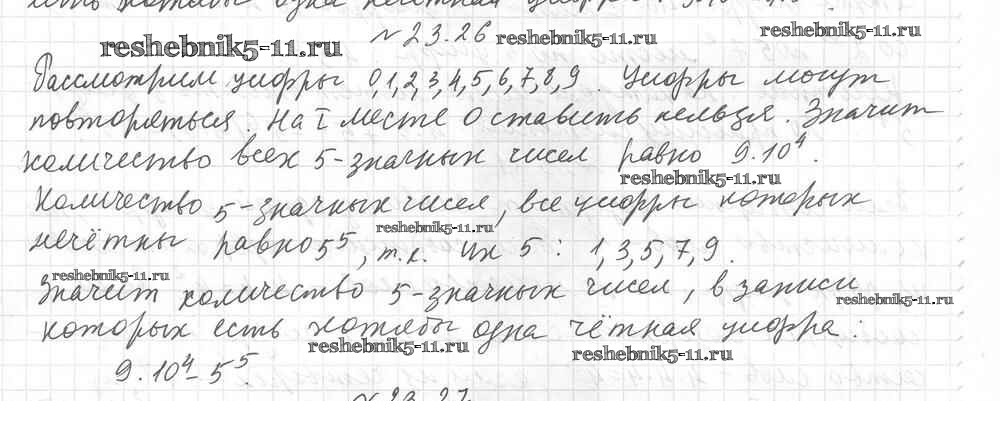 есть хотябы одна нечётная цифра
№ 23.26
reshebnik5-11.ru reshebnik5-11.ru reshebnik5-11.ru
Рассмотрим цифры 0,1,2,3,4,5,6,7,8,9. Цифры могут
повторяться. На I месте 0 ставить нельзя. Значит
количество всех 5-значных чисел равно 9·10⁴.
reshebnik5-11.ru
Количество 5-значных чисел, все цифры которых
reshebnik5-11.ru
нечётны равно 5⁵, т.к. их 5: 1,3,5,7,9.
reshebnik5-11.ru
Значит количество 5-значных чисел, в записи
reshebnik5-11.ru
которых есть хотябы одна чётная цифра:
reshebnik5-11.ru reshebnik5-11.ru
9·10⁴-5⁵.
№ 23.27